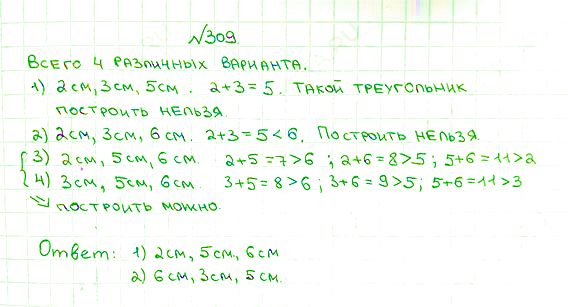 №309.
Всего 4 различных варианта.
1) 2см, 3см, 5см. 2+3=5. Такой треугольник
построить нельзя.
2) 2см, 3см, 6см. 2+3=5<6. Построить нельзя.
3) 2см, 5см, 6см. 2+5=7>6 ; 2+6=8>5 ; 5+6=11>2
4) 3см, 5см, 6см. 3+5=8>6 ; 3+6=9>5 ; 5+6=11>3
⇒ построить можно.
Ответ: 1) 2см, 5см, 6см
2) 6см, 3см, 5см.